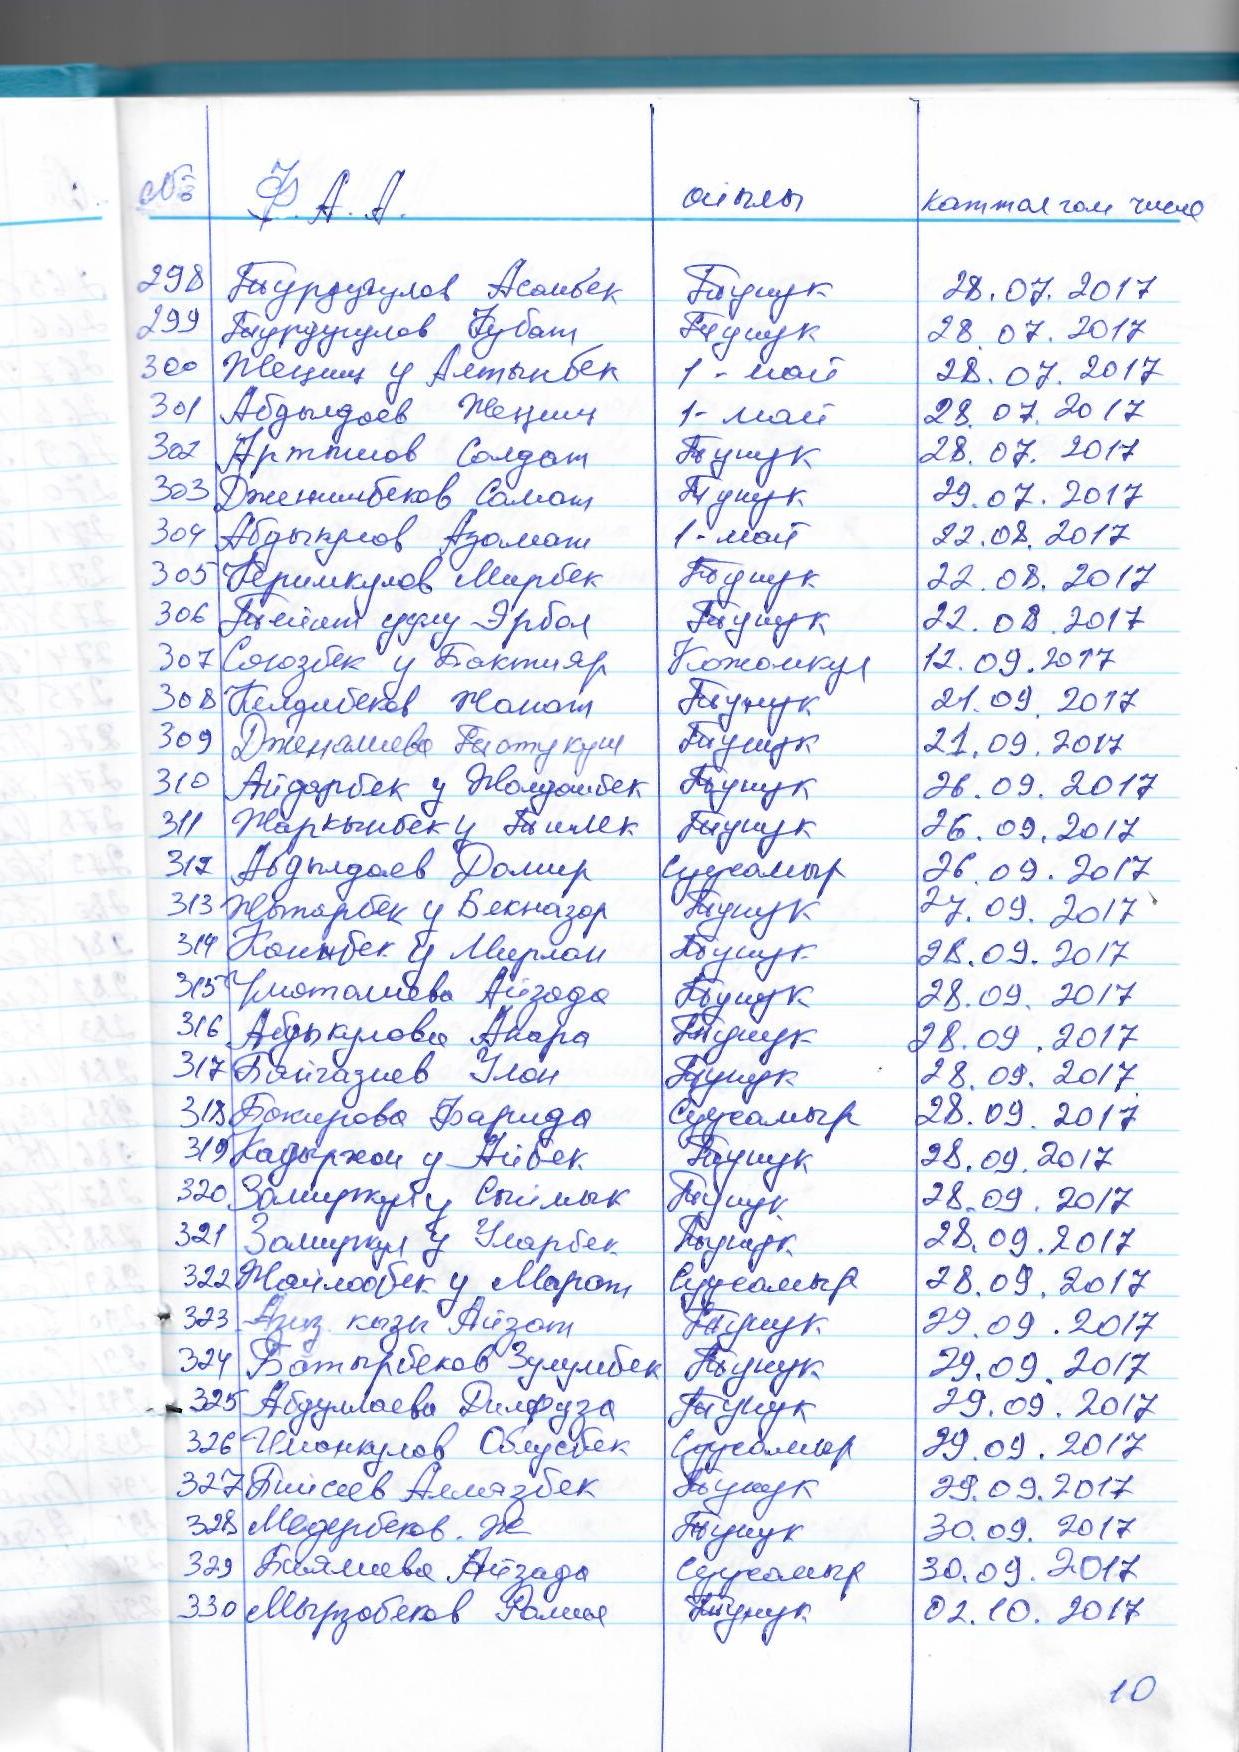 № Ф.А.А. айылы катталган число
298 Турдугулов Асанбек Тунук 28.07.2017
299 Турдугулов Кубат Тунук 28.07.2017
300 Жеңиш у Алтынбек 1-май 28.07.2017
301 Абдылдаев Жеңиш 1-май 28.07.2017
302 Солдат Тунук 28.07.2017
303 Дженишбеков Самат Тунук 29.07.2017
304 Абдыкулов Азамат 1-май 22.08.2017
305 Керимкулов Мирбек Тунук 22.08.2017
306 уулу Эрбол Тунук 22.08.2017
307 Союзбек у Бактияр Кожомкул 12.09.2017
308 Келдибеков Жанат Тунук 21.09.2017
309 Дженалиева Тунук 21.09.2017
310 Айдарбек у Жолдошбек Тунук 26.09.2017
311 Жаркынбек у Тилек Тунук 26.09.2017
312 Абдылдаев Дамир Суусамыр 26.09.2017
313 у Бекназар Тунук 27.09.2017
314 у Мирлан Тунук 28.09.2017
315 Уматалиева Айзада Тунук 28.09.2017
316 Абдыкулова Анара Тунук 28.09.2017
317 Байгазиев Улан Тунук 28.09.2017
318 Бакирова Фарида Суусамыр 28.09.2017
319 Кадыржан у Айбек Тунук 28.09.2017
320 Замиркул у Сыймык Тунук 28.09.2017
321 Замиркул у Уларбек Тунук 28.09.2017
322 Жайлообек у Марат Суусамыр 28.09.2017
323 Азиз кызы Айзат Тунук 29.09.2017
324 Батырбеков Зулумбек Тунук 29.09.2017
325 Абдуллаева Дилфуза Тунук 29.09.2017
326 Иманкулов Суусамыр 29.09.2017
327 Алмазбек Тунук 29.09.2017
328 Мадербеков. Ж Тунук 30.09.2017
329 Баялиева Айзада Суусамыр 30.09.2017
330 Мырзабеков Тунук 02.10.2017
10